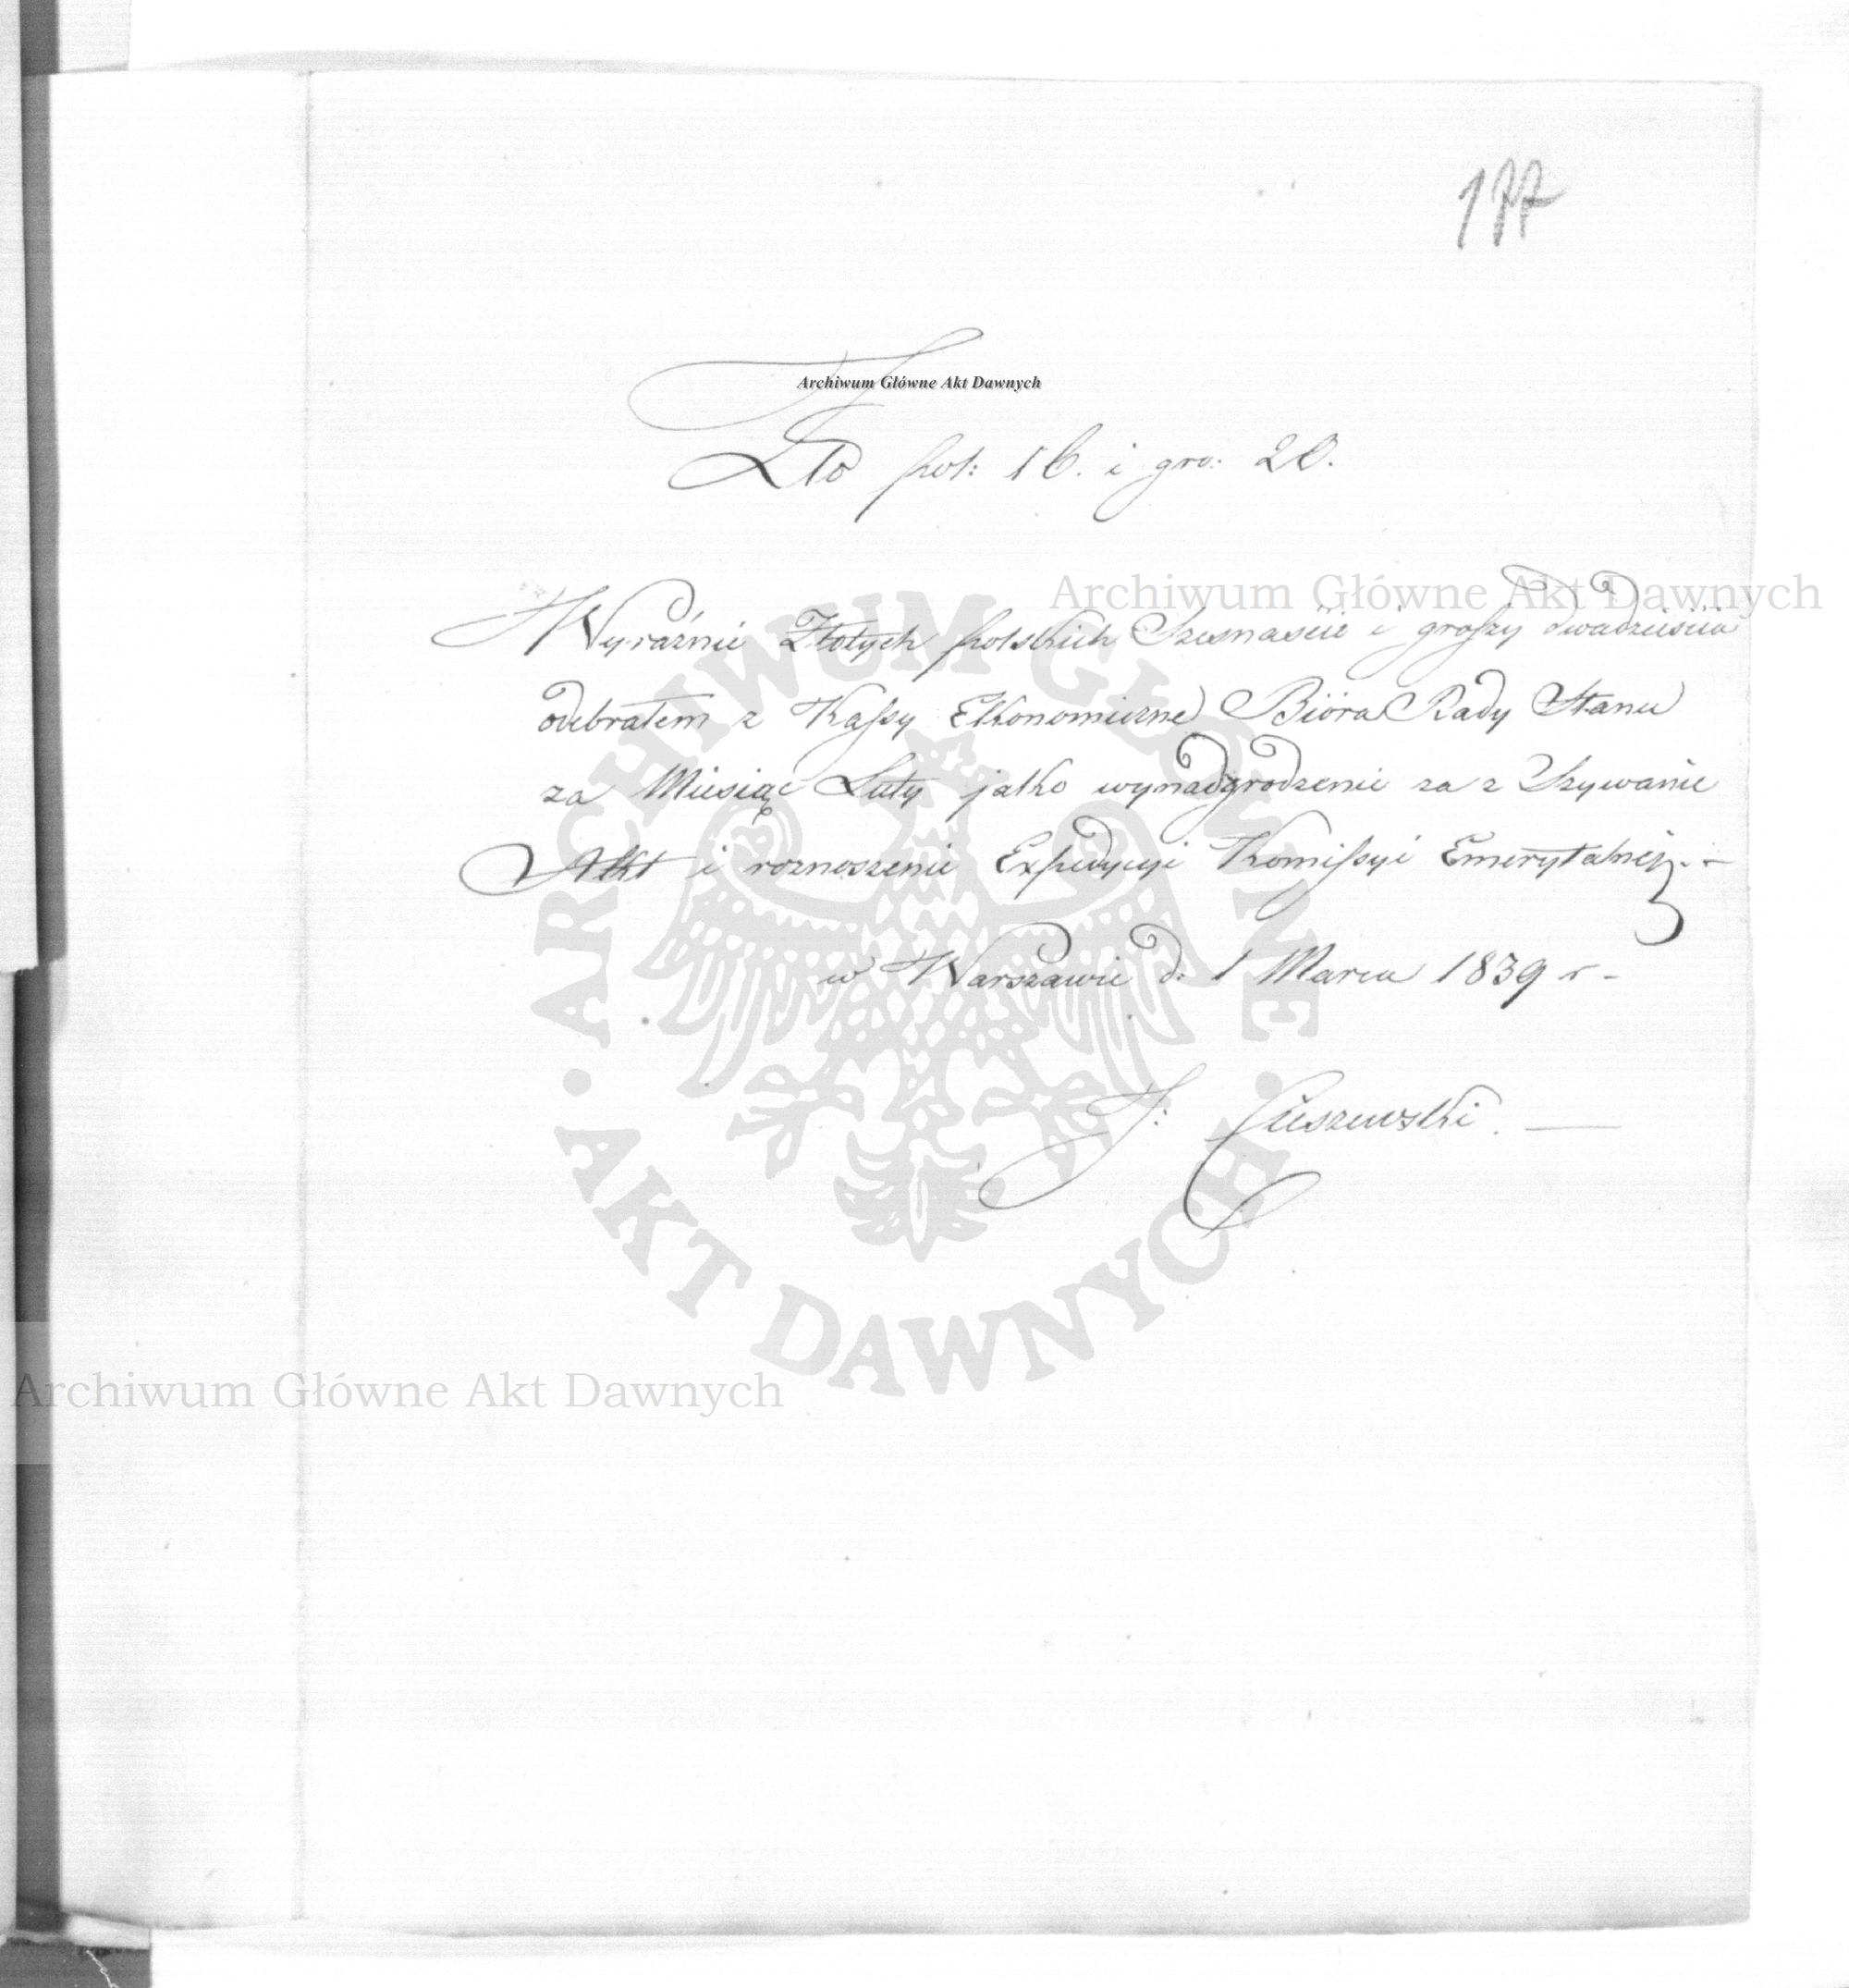 177
Archiwum Główne Akt Dawnych
Zło pol: 16. i gro: 20.
Archiwum Główne Akt Dawnych
Wyraźnie Złotych polskich Szesnaście i groszy dwadzieścia
odebrałem z Kassy Ekonomiczné Bióra Rady Stanu
za Miesiąc Luty jako wynadgrodzenie za z Szywanie
Akt i roznoszenie Expedycyi Komissyi Emerytalnéj. -
w Warszawie d: 1 Marca 1839 r -
J: Cieszewski. —
ARCHIWUM GŁÓWNE · AKT DAWNYCH ·
Archiwum Główne Akt Dawnych